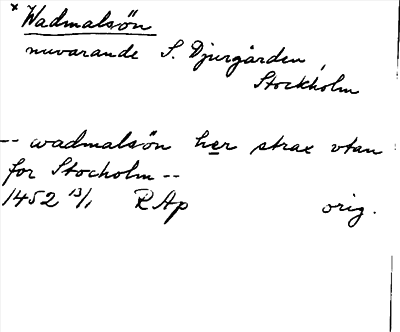 * Wadmalsön
nuvarande S. Djurgården,
Stockholm
-- wadmalsön her strax vtan
for Stocholm --
1452 13/1 RAp orig.